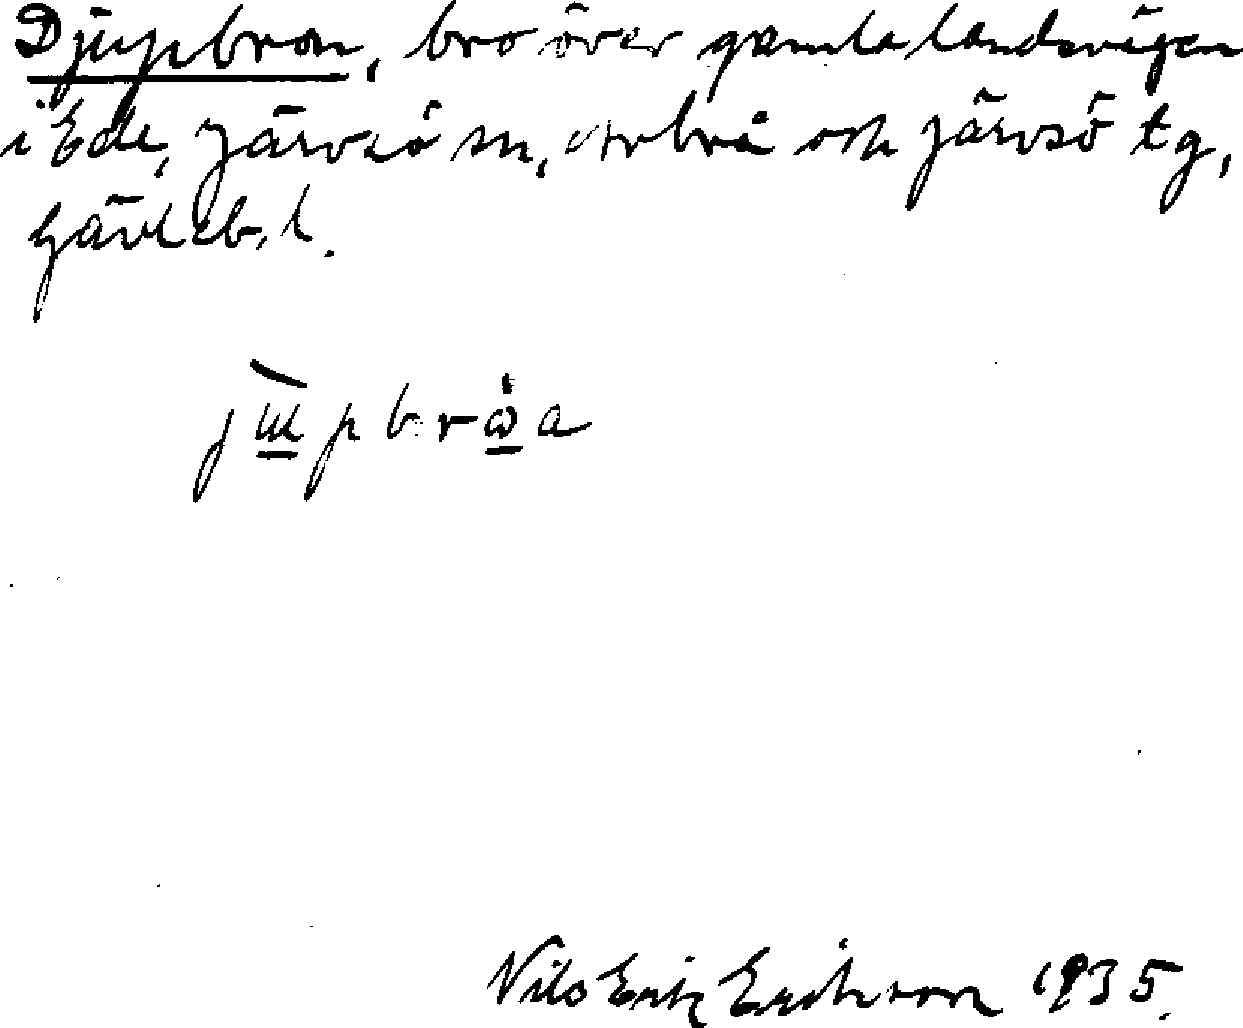 Djupbron, bro över gamla landsvägen
i Ede, Järvsö sn, Arbrå och Järvsö tg,
Gävleb. l.
Nils Erik Eriksson 1935.